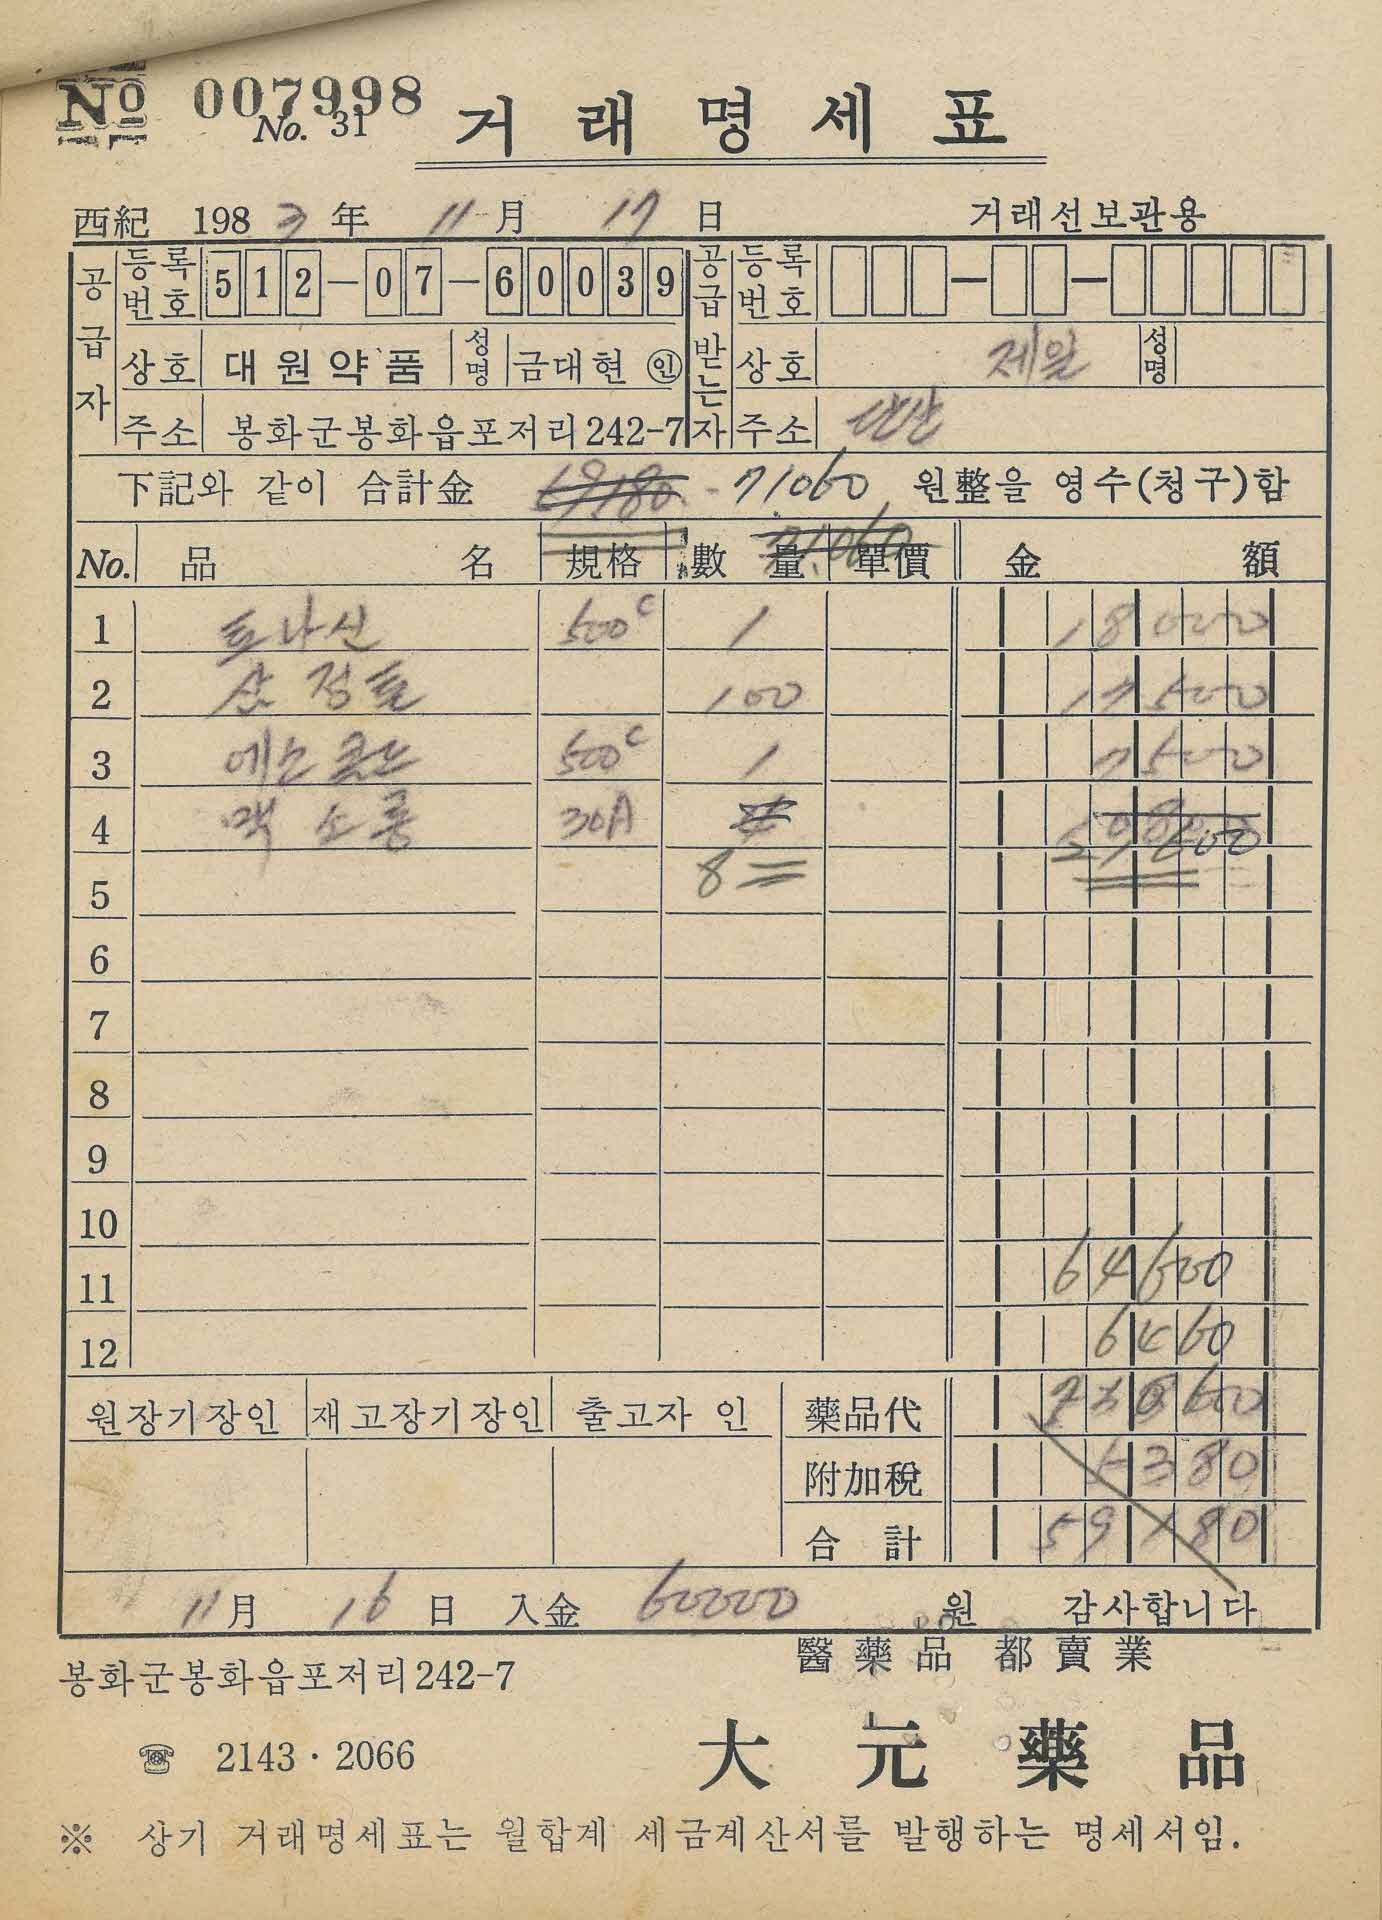 No 007998
No. 31
거래명세표
西紀 1983年 11月 17日 거래선보관용
공급자 등록번호 512-07-60039 공급받는자 등록번호
상호 대원약품 성명 금대현 인 상호 제일 성명
주소 봉화군봉화읍포저리242-7 주소 단산
下記와 같이 合計金 71060 원整을 영수(청구)함
71,060
No. 品名 規格 數量 單價 金額
1 토나신 500c 1 18000
2 삼정톤 100 17500
3 에스콜드 500c 1 7500
4 맥소롱 30A
8
5
6
7
8
9
10
11 64600
12 6460
원장기장인 재고장기장인 출고자 인 藥品代
附加稅 5380
合計 59180
11月 16日 入金 60000 원 감사합니다
醫藥品 都賣業
봉화군봉화읍포저리242-7
大元藥品
☎ 2143·2066
※ 상기 거래명세표는 월합계 세금계산서를 발행하는 명세서임.